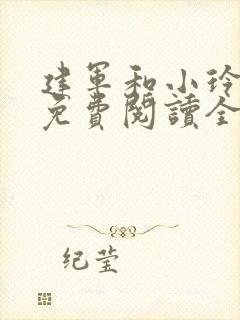 建军和小玲
免費閱讀全
纪莹